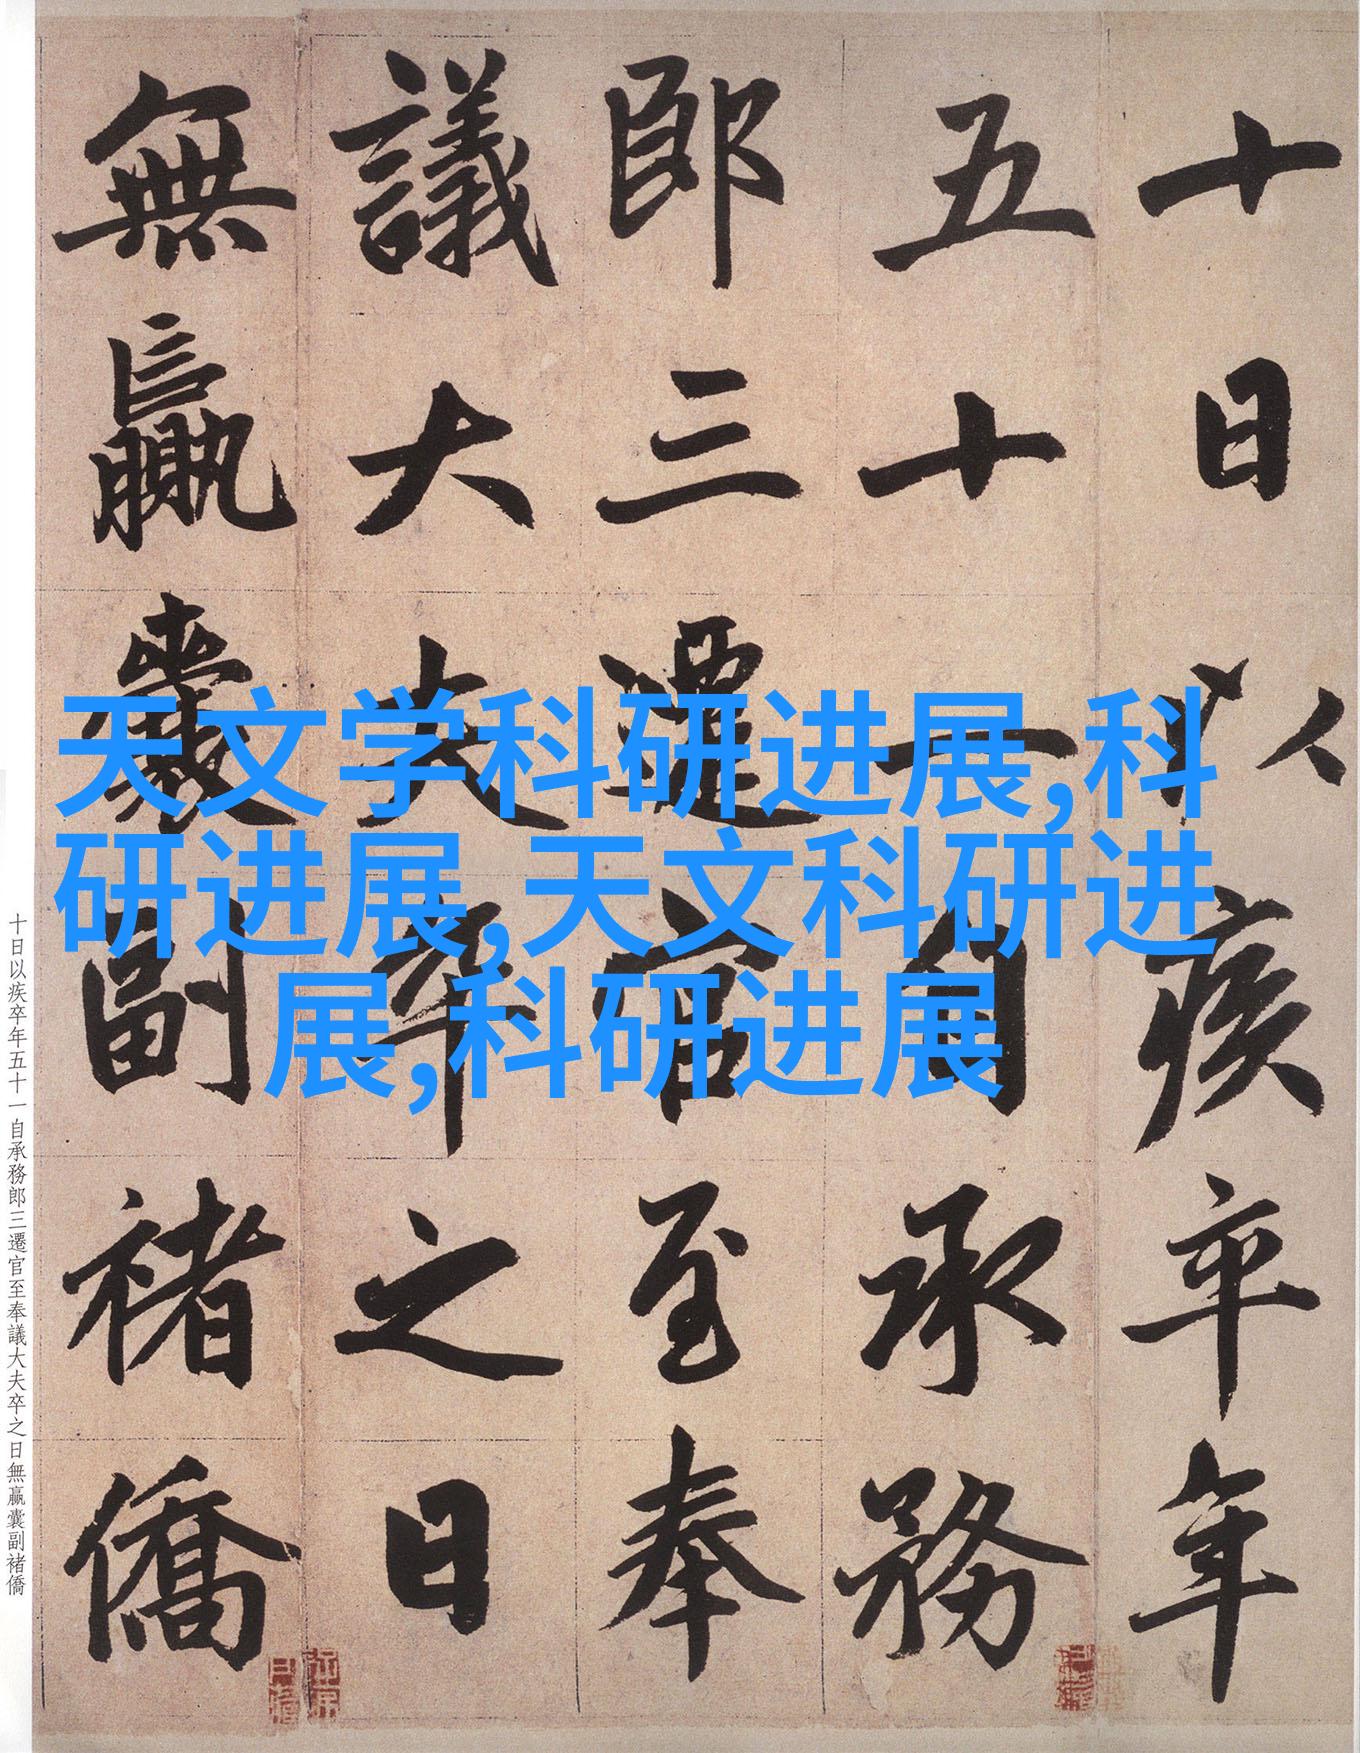 十日以疾卒年
五十一自承務
郎三遷官至奉
議大夫卒之日
無贏囊副褚僑
天文学科研进展,科
研进展,天文科研进
展,科研进展
十日以疾卒年五十一自承務郎三遷官至奉議大夫卒之日無贏囊副褚僑